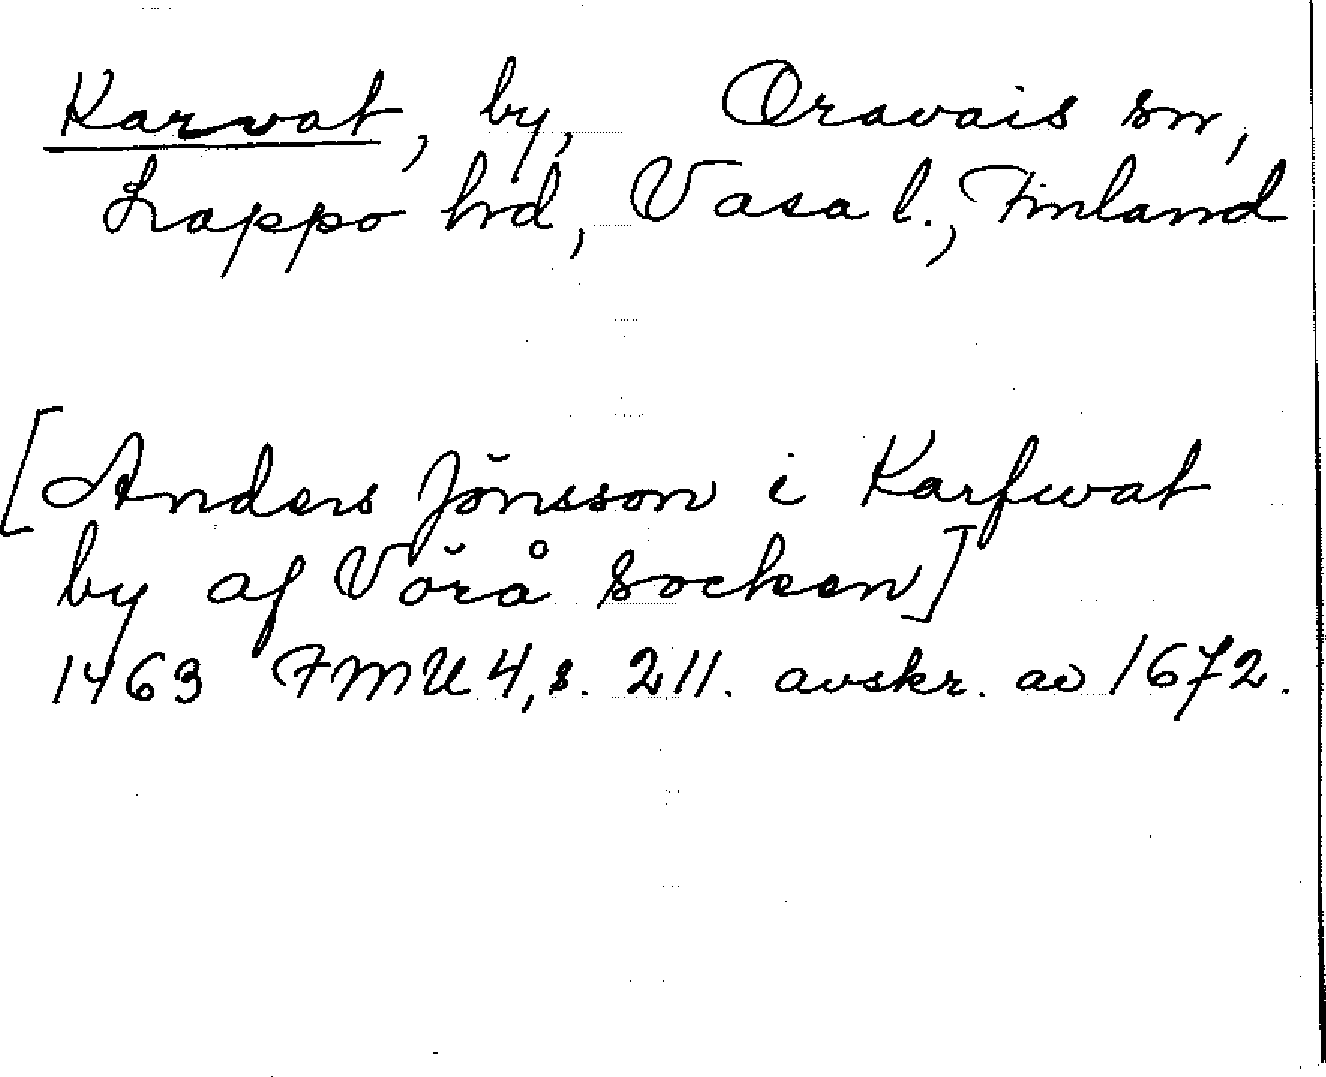 Karvat, by, Oravais sn,
Lappo hd, Vasa l., Finland
[Anders Jönsson i Karfwat
by af Vörå socken]
1463 FMU 4, s. 211. avskr. av 1672.